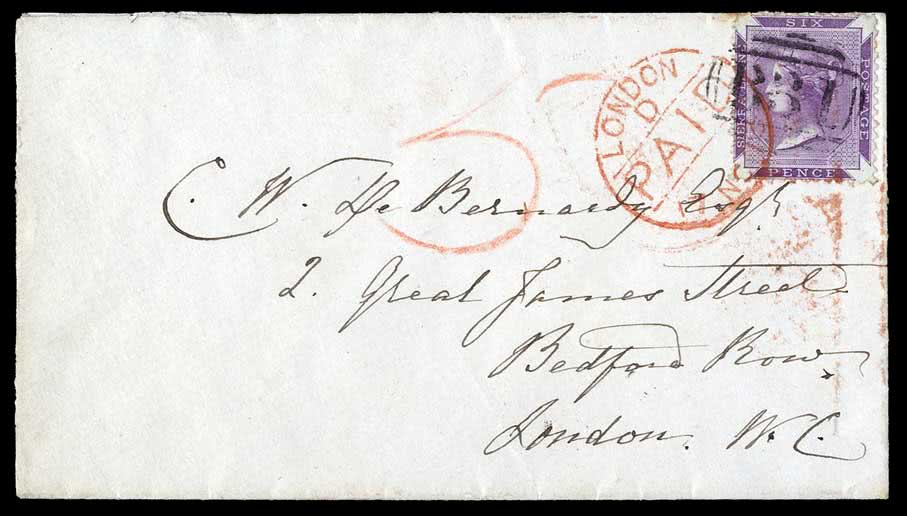 SIX
SIERRA LEONE
POSTAGE
PENCE
LONDON
D
PAID
5
C. W. De Bernardy Esqr
2. Great James Street
Bedford Row,
London. W.C.